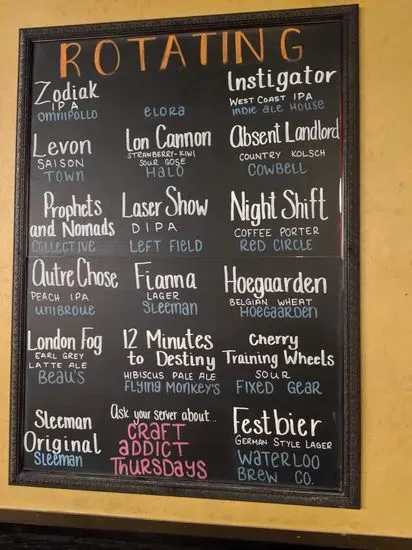 ROTATING
Zodiak
IPA
OMNIPOLLO
ELORA
Instigator
WEST COAST IPA
INDIE ALE HOUSE
Levon
SAISON
TOWN
Ion Cannon
STRAWBERRY-KIWI
SOUR GOSE
HALO
Absent Landlord
COUNTRY KOLSCH
COWBELL
Prophets
and Nomads
COLLECTIVE
Laser Show
DIPA
LEFT FIELD
Night Shift
COFFEE PORTER
RED CIRCLE
Autre Chose
PEACH IPA
UNIBROUE
Fianna
LAGER
SLEEMAN
Hoegaarden
BELGIAN WHEAT
HOEGAARDEN
London Fog
EARL GREY
LATTE ALE
BEAU'S
12 Minutes
to Destiny
HIBISCUS PALE ALE
FLYING MONKEY'S
Cherry
Training Wheels
SOUR
FIXED GEAR
Sleeman
Original
SLEEMAN
Ask your server about...
CRAFT
ADDICT
THURSDAYS
Festbier
GERMAN STYLE LAGER
WATERLOO
BREW CO.